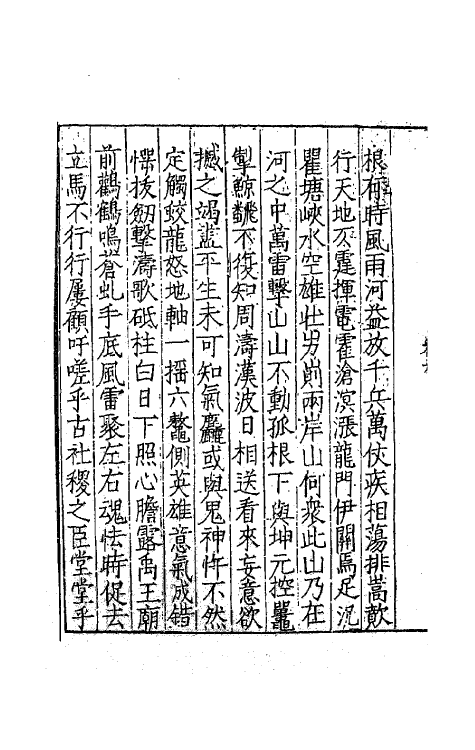 根有時風雨河益放千兵萬俠疾相蕩排蒿歕
行天地云霆揮電霍滄溟漲龍門伊闕馬足況
瞿塘峽水空雄壯岃崱兩岸山何衆此山乃在
河之中萬雷擊山山不動孤根下與坤元控鼉
掣鯨翻不復知周濤漢波日相送看來妄意欲
撼之竭盡平生未可知氣麤或與鬼神忤不然
定觸蛟龍怒地軸一搖六鼇側英雄意氣成錯
愕拔劒擊濤歌砥柱白日下照心膽露禹王廟
前鸛鶴鳴蒼虬手底風雷聚左右魂怯時促去
立馬不行行屢顧吁嗟乎古社稷之臣堂堂乎